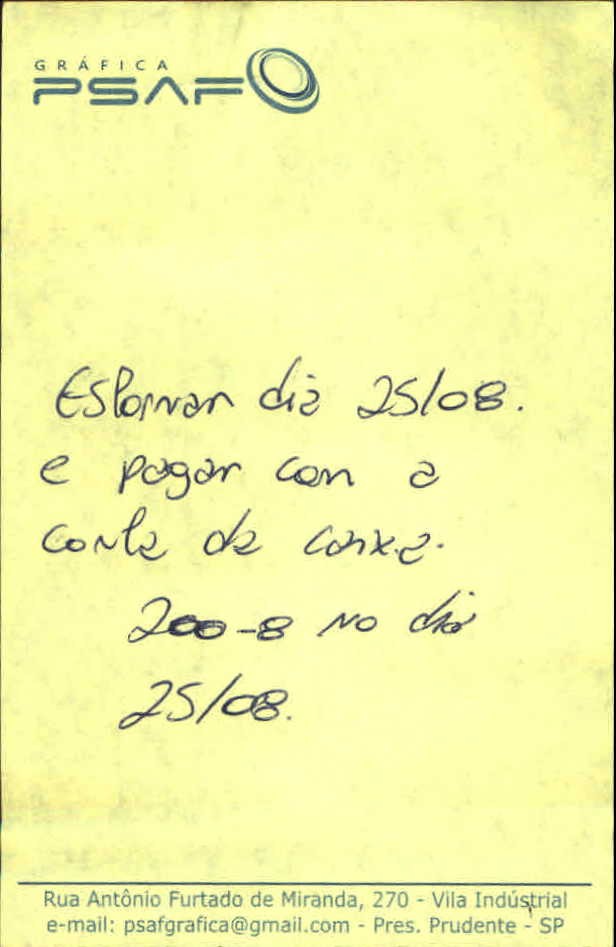 GRÁFICA
PSAF
Estornar dia 25/08.
e pagar com a
conta da caixa.
200-8 no dia
25/08.
Rua Antônio Furtado de Miranda, 270 - Vila Indústrial
e-mail: psafgrafica@gmail.com - Pres. Prudente - SP